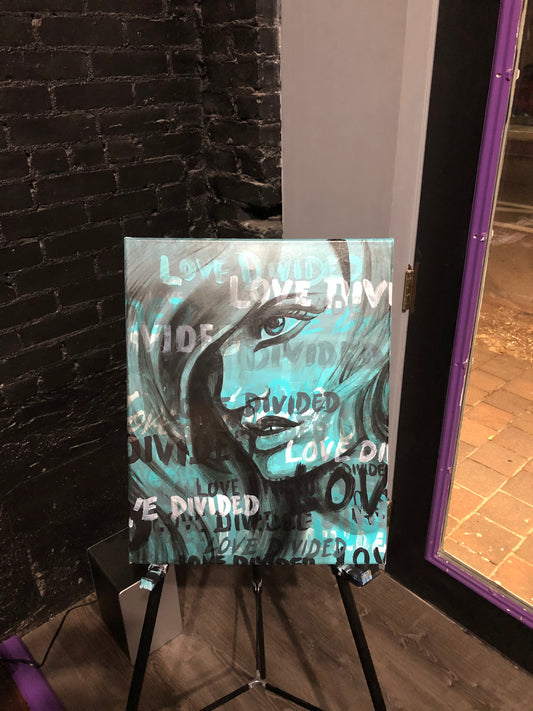 LOVE DIVIDED
LOVE DIVI
VIDED
DIVIDED
DIVIDED
LOVE
DIVIDE
LOVE DI
DIVIDED
LOVE
OV
VE DIVIDED
DIVIDE
LOVE DIVIDED
LOVE DIVIDED
OV